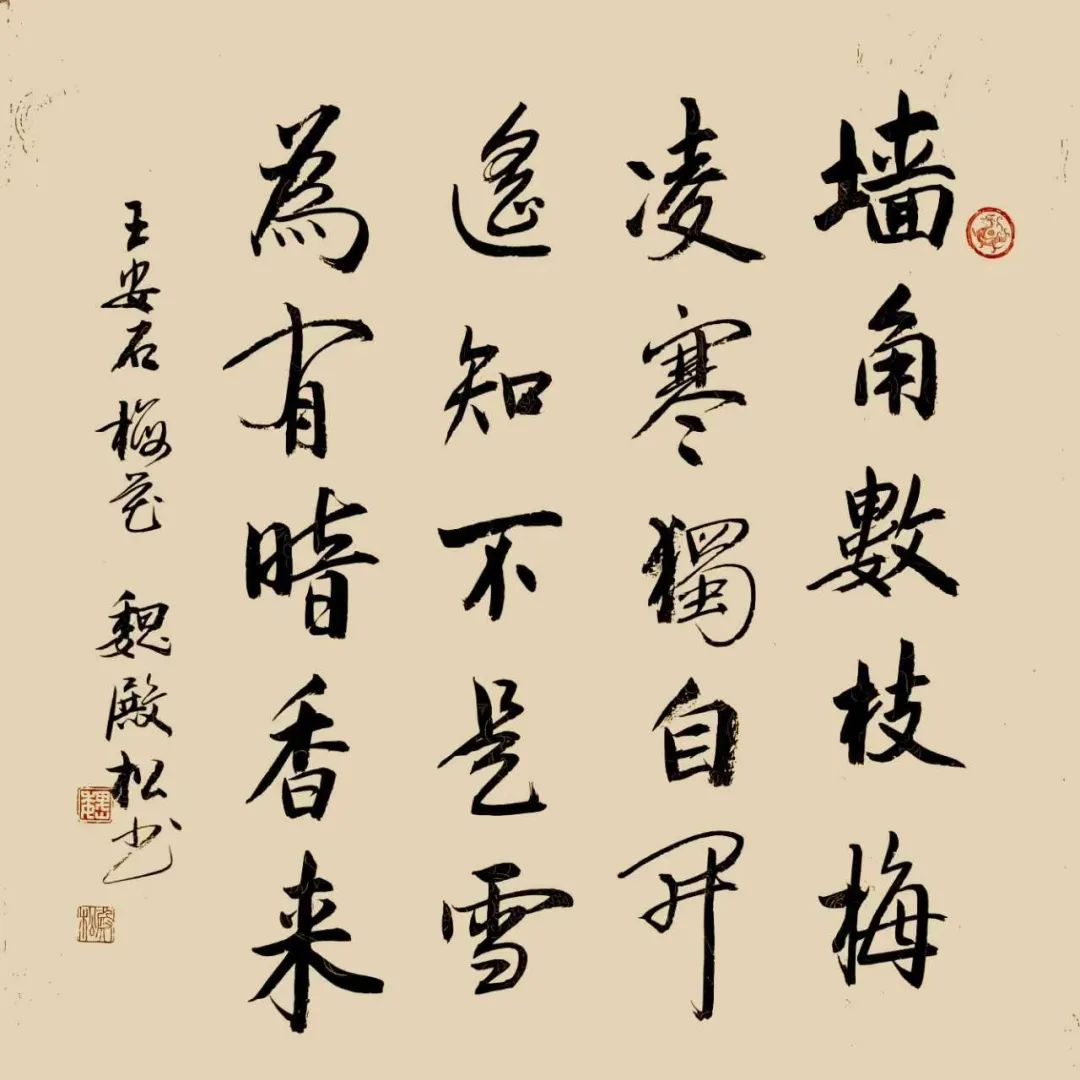 墙角數枝梅
凌寒獨自開
遙知不是雪
為有暗香来
王安石梅花 魏殿松书
魏